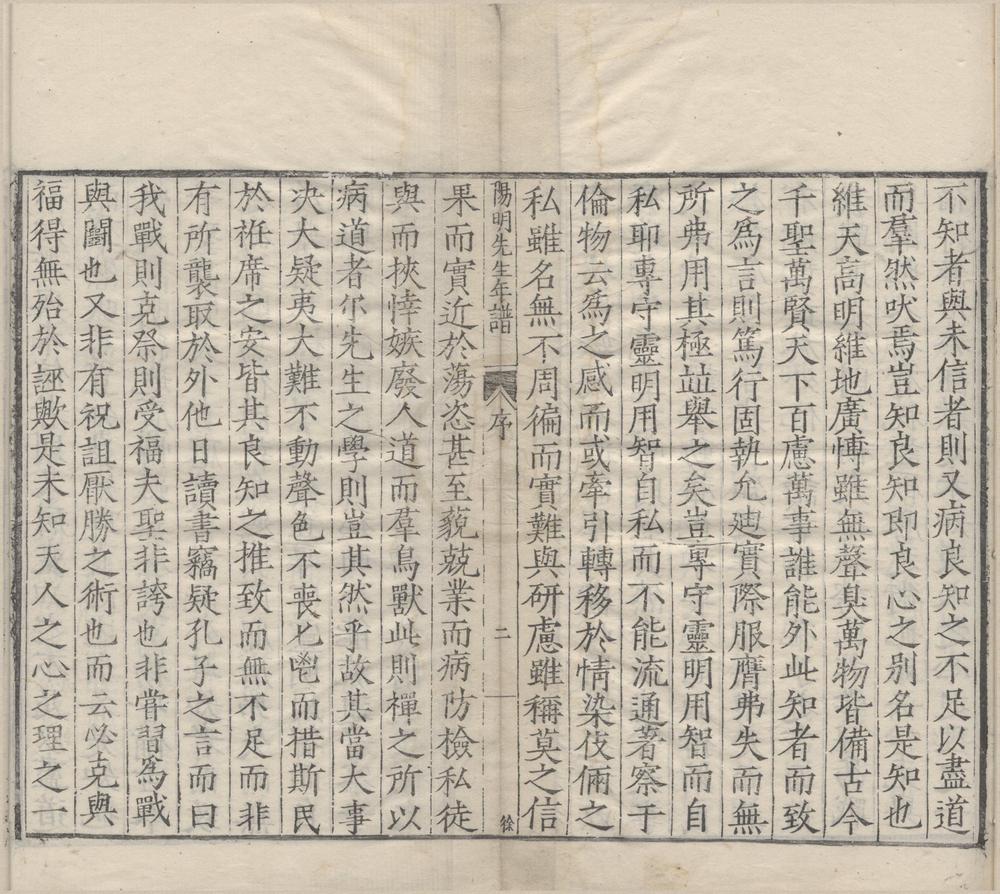 不知者與未信者則又病良知之不足以盡道
而羣然吠焉豈知良知即良心之别名是知也
維天高明維地廣博雖無聲臭萬物皆備古今
千聖萬賢天下百慮萬事誰能外此知者而致
之爲言則篤行固執允廸實際服膺弗失而無
所弗用其極竝舉之矣豈專守靈明用智而自
私耶專守靈明用智自私而不能流通著察于
倫物云爲之感而或牽引轉移於情染伎倆之
私雖名無不周徧而實難與研慮雖稱莫之信
陽明先生年譜 序 二 徐
果而實近於蕩恣甚至藐兢業而病防檢私徒
與而挾悻嫉廢人道而羣鳥獸此則禪之所以
病道者尔先生之學則豈其然乎故其當大事
决大疑夷大難不動聲色不喪匕鬯而措斯民
於袵席之安皆其良知之推致而無不足而非
有所襲取於外他日讀書竊疑孔子之言而曰
我戰則克祭則受福夫聖非誇也非嘗習爲戰
與鬬也又非有祝詛厭勝之術也而云必克與
福得無殆於誣歟是未知天人之心之理之一